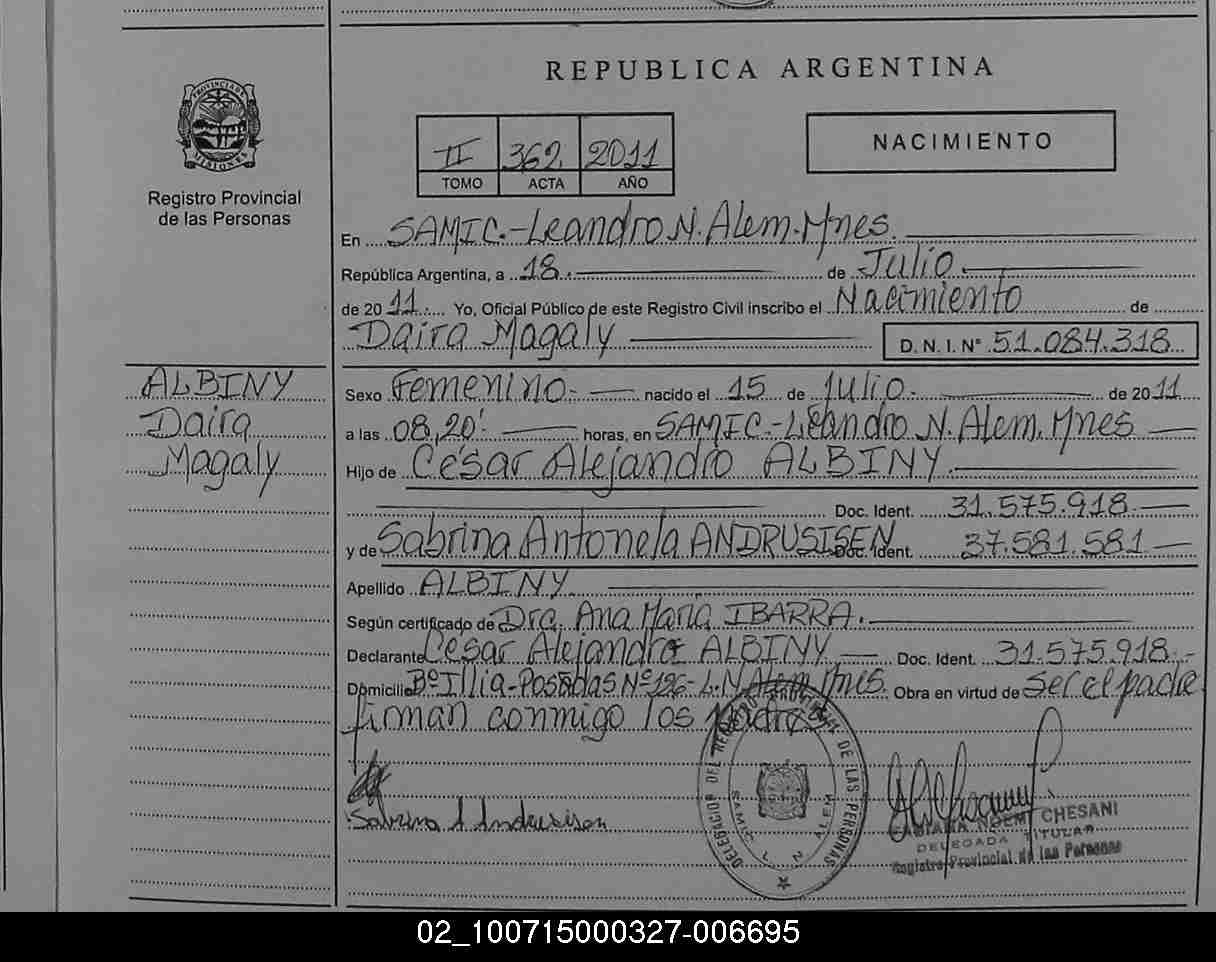 REPUBLICA ARGENTINA
PROVINCIA DE MISIONES
Registro Provincial
de las Personas
II 362 2011
TOMO ACTA AÑO
NACIMIENTO
En SAMIC.-Leandro N. Alem.Mnes.
República Argentina, a 18. de Julio.
de 2011. Yo, Oficial Público de este Registro Civil inscribo el Nacimiento de
Daira Magaly D. N. I. N° 51.084.318
ALBINY
Daira
Magaly
Sexo Femenino.- nacido el 15 de Julio. de 2011
a las 08,20' horas, en SAMIC.-Leandro N. Alem. Mnes
Hijo de César Alejandro ALBINY.
Doc. Ident. 31.575.918.
y de Sabrina Antonela ANDRUSISEN Doc. Ident. 37.581.581
Apellido ALBINY
Según certificado de Dra. Ana María IBARRA.
Declarante César Alejandro ALBINY Doc. Ident. 31.575.918.-
Domicilio B° Illia-Posadas N° 196-L.N.Alem.Mnes. Obra en virtud de ser el padre
firman conmigo los Padres
Sabrina A Andrusisen
DELEGACION DEL REGISTRO PROVINCIAL DE LAS PERSONAS
SAMIC L. N. ALEM
FABIANA NOEMI CHESANI
DELEGADA TITULAR
Registro Provincial de las Personas
02_100715000327-006695